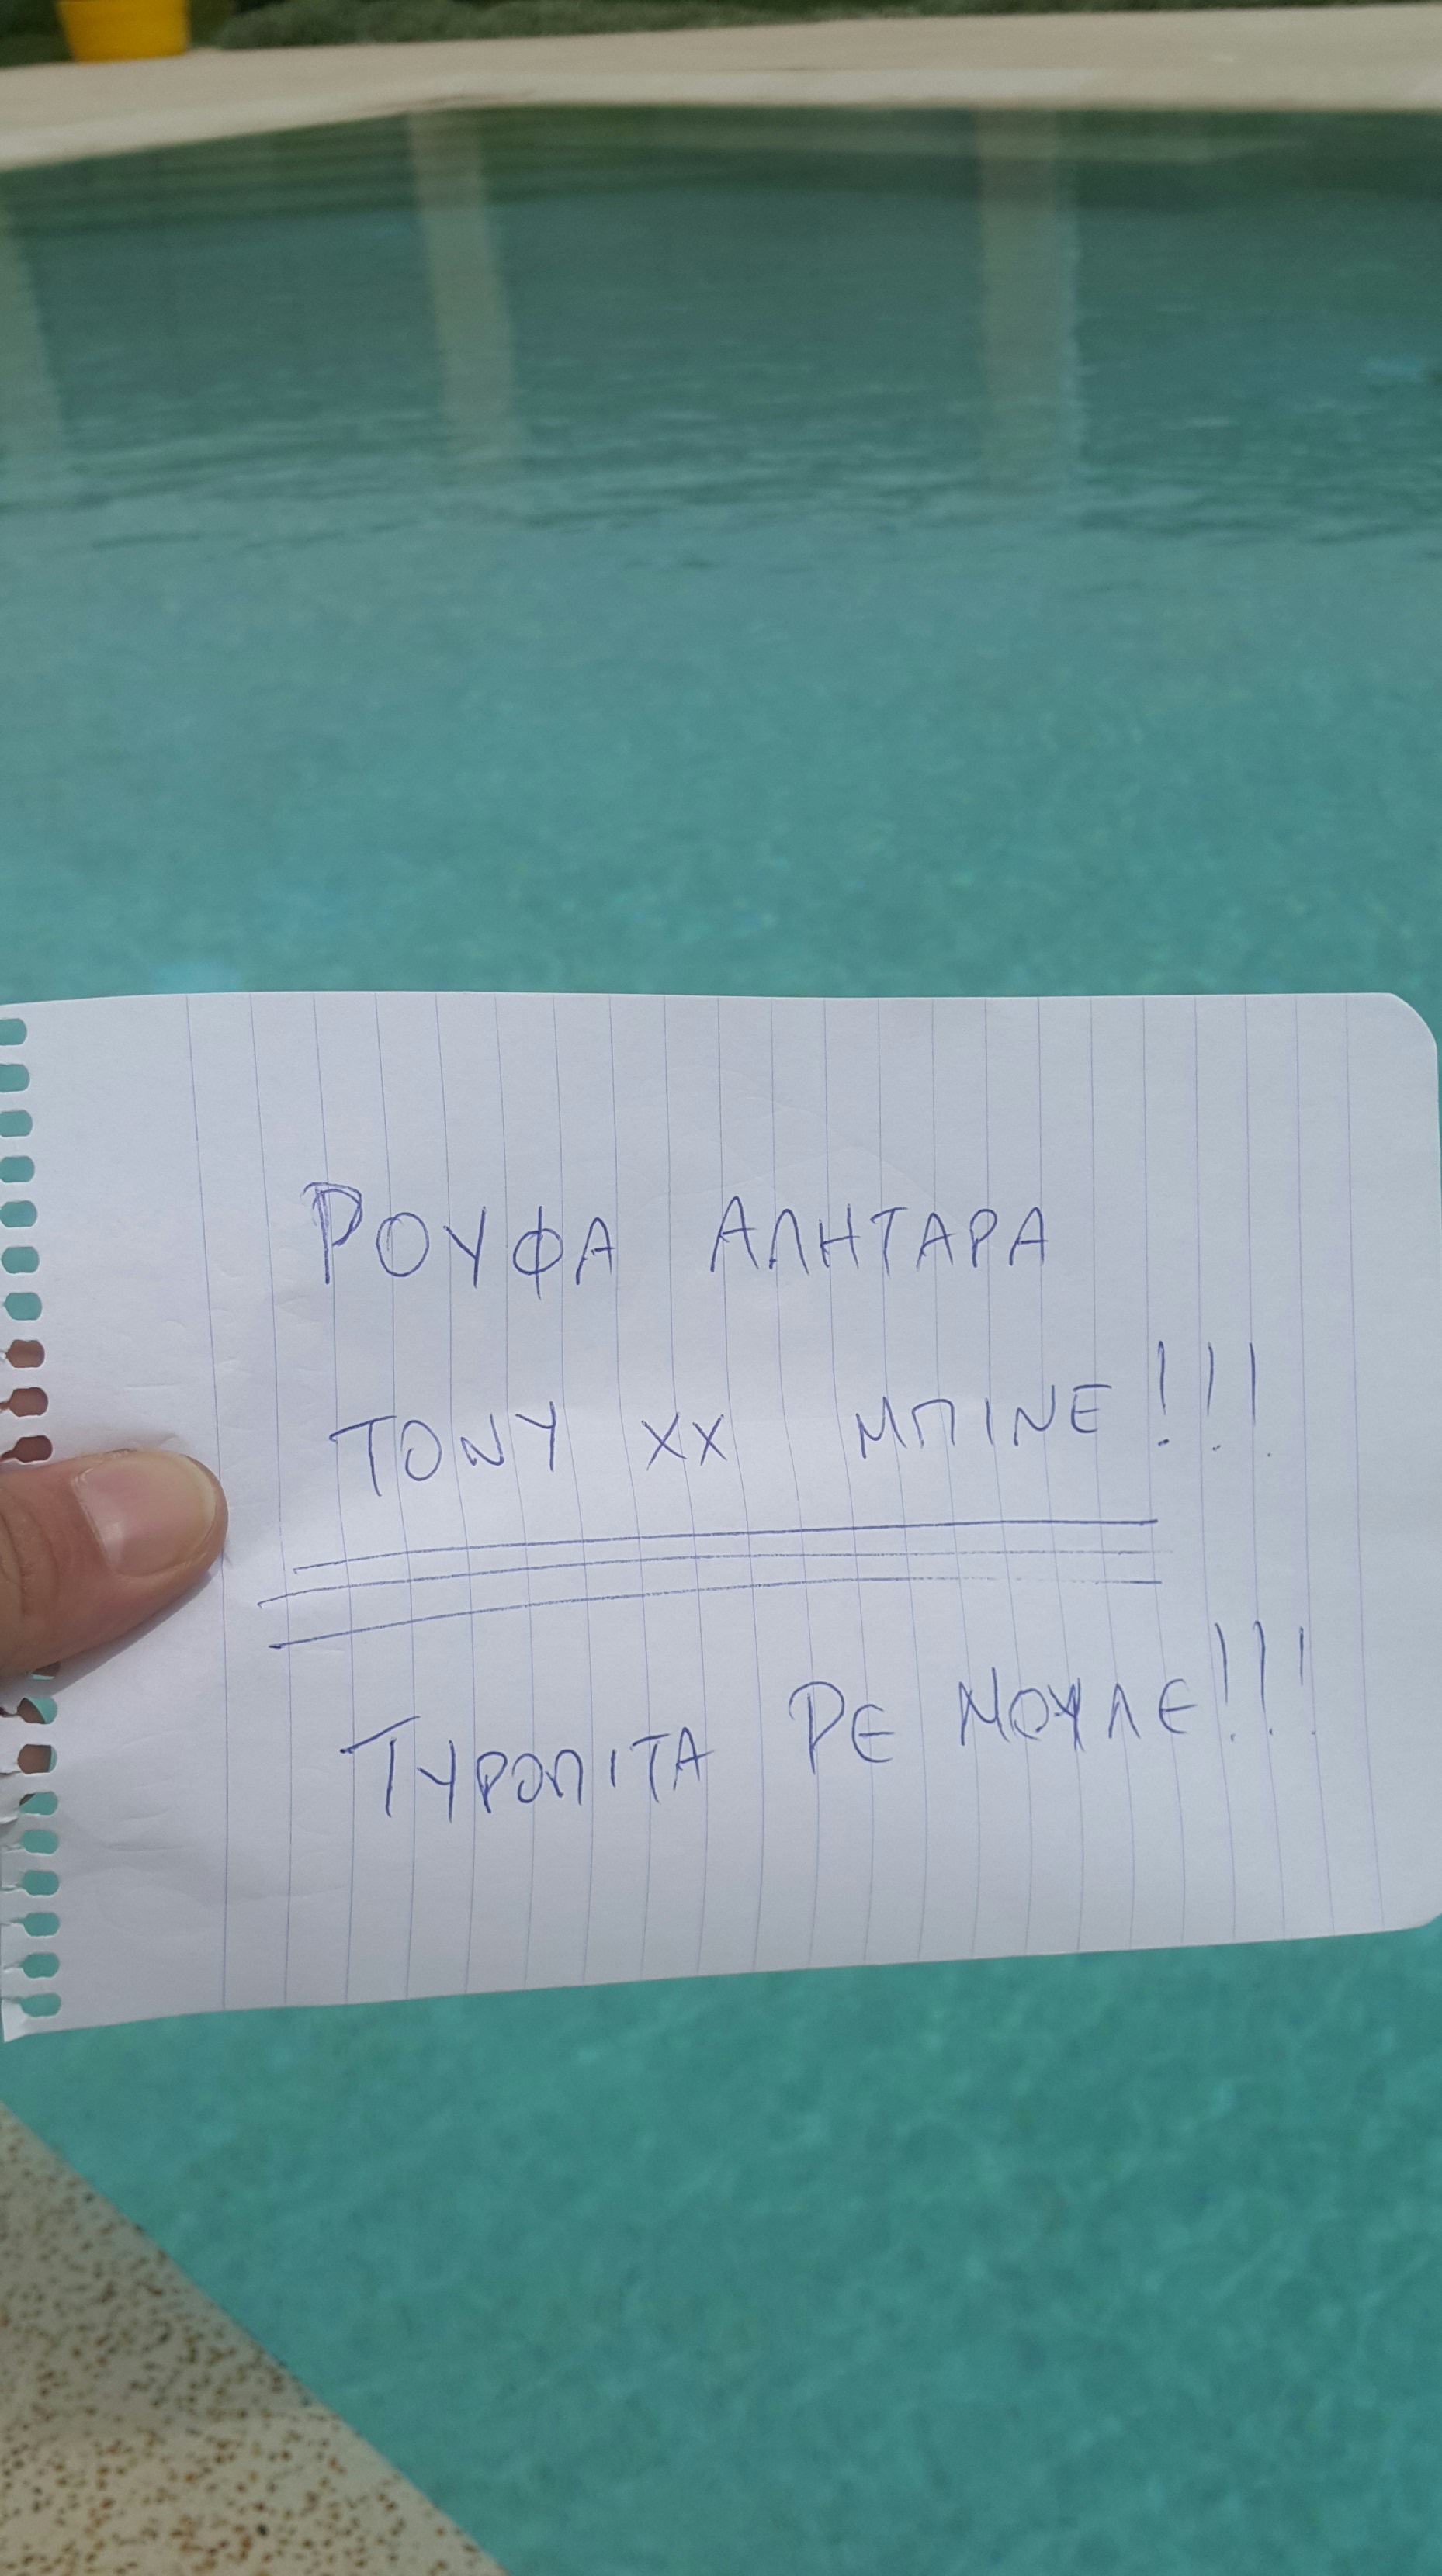 ΡΟΥΦΑ ΑΛΗΤΑΡΑ
TONY XX ΜΠΙΝΕ!!!
ΤΥΡΟΠΙΤΑ ΡΕ ΜΟΥΛΕ!!!